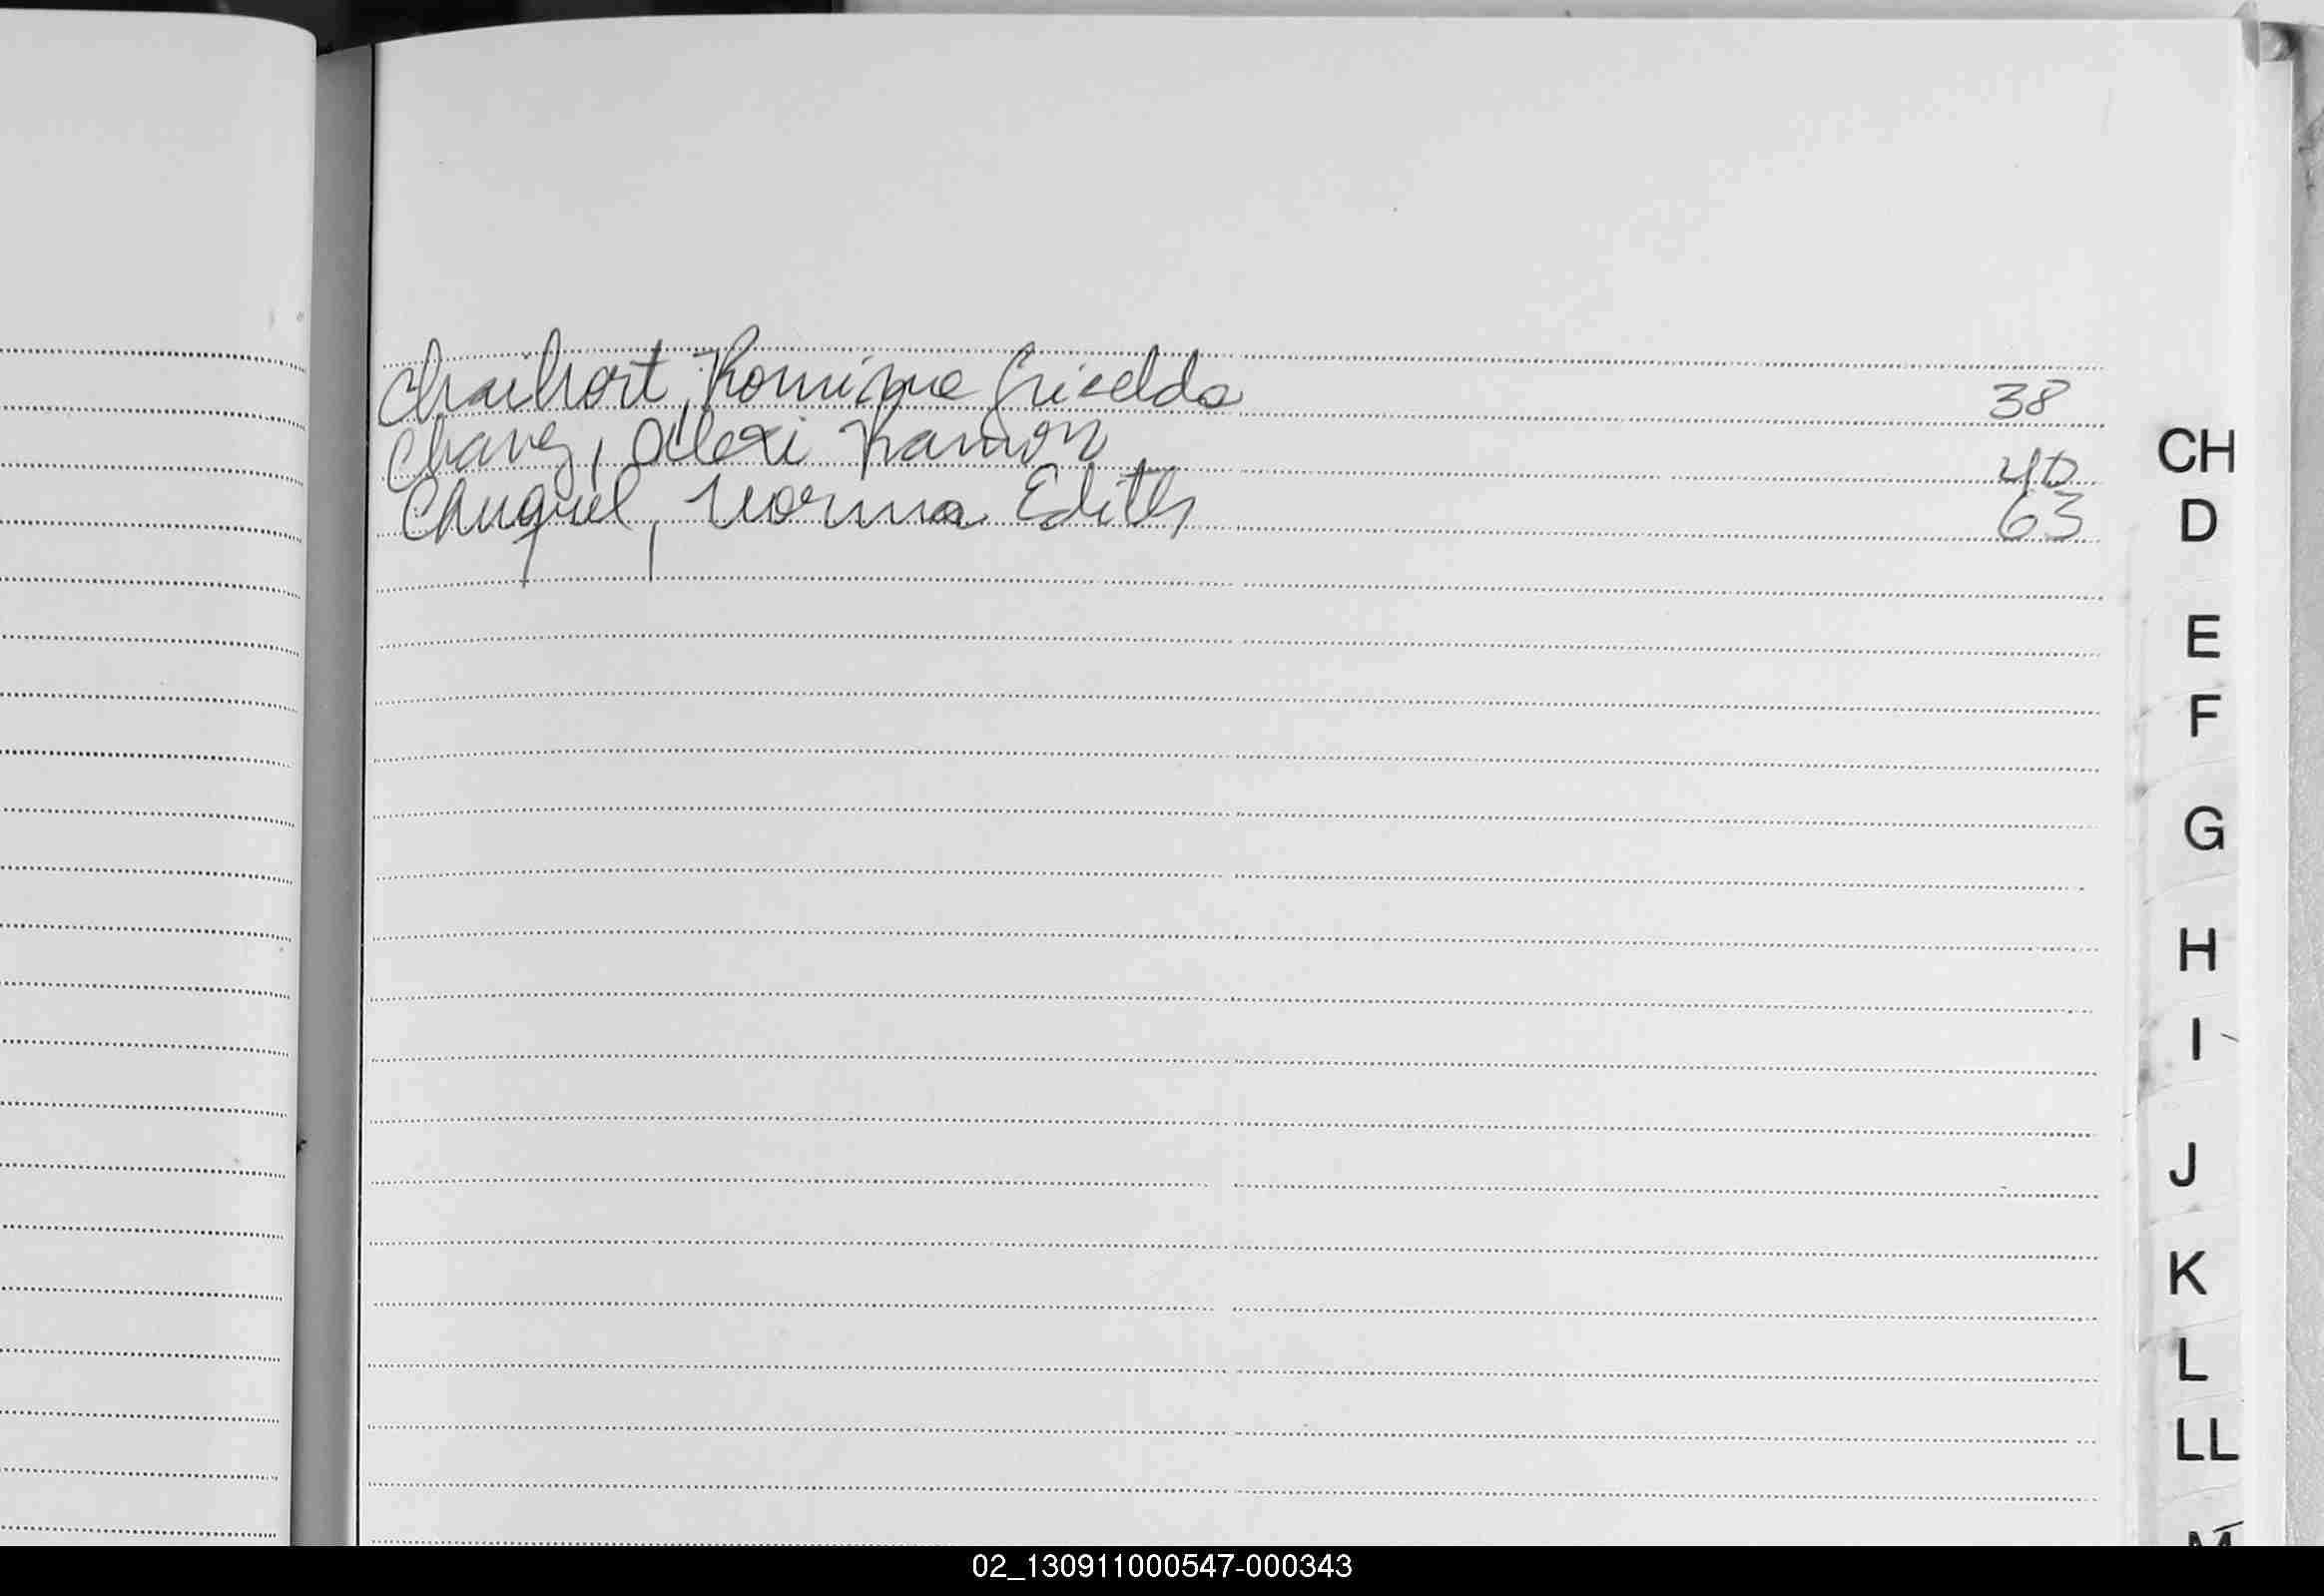 Chaihort, Romina Griselda 38
Chavez, Alexi Ramon 40
Chuquel, Norma Edith 63
CH
D
E
F
G
H
I
J
K
L
LL
M
02_130911000547-000343